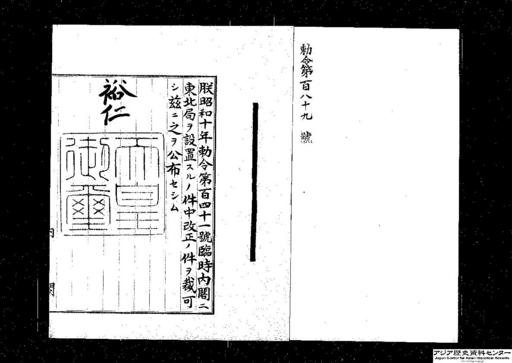 勅令第百八十九號
朕昭和十年勅令第百四十一號臨時內閣ニ
東北局ヲ設置スルノ件中改正ノ件ヲ裁可
シ茲ニ之ヲ公布セシム
裕仁
天皇
御璽
內
閣
アジア歴史資料センター
Japan Center for Asian Historical Records